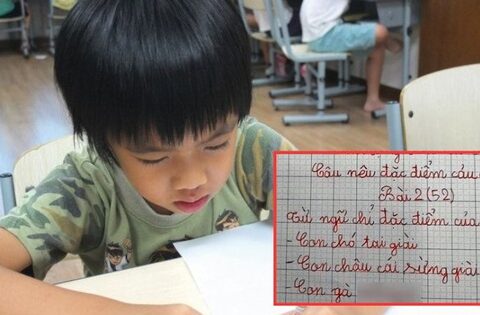 Câu nêu đặc điểm của
Bài 2 (52)
Từ ngữ chỉ đặc điểm của
- Con chó tai giài
- Con châu cái sừng giài
- Con gà